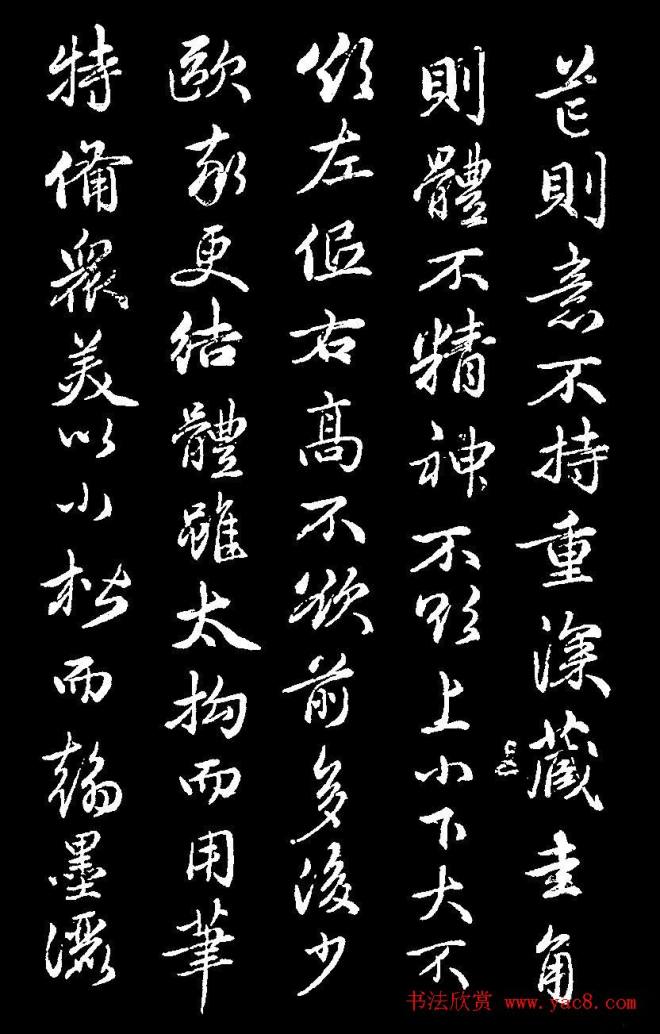 芒則意不持重深藏圭角
則體不精神不欲上小下大不
欲左低右高不欲前多後少
歐率更結體雖太拘而用筆
特備眾美以小楷而翰墨灑
书法欣赏 www.yac8.com